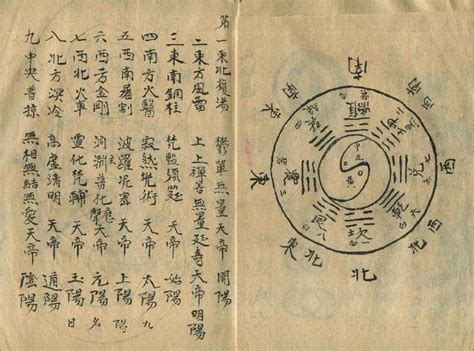 第一東北鑊湯 鬱單無量天帝 開陽
二東方風雷 上上禪善無量延壽天帝 明陽
三東南銅柱 梵監須延 天帝 始陽
四南方火翳 寂然兜術 天帝 太陽 九
五西南屠割 波羅尼蜜 天帝 上陽
六西方金剛 洞淵普化應聲 天帝 元陽 名
七西北火車 靈化梵輔 天帝 玉陽 日
八北方溟冷 高虛清明 天帝 遁陽
九中央普掠 無相無結無愛天帝 陰陽
南
西南
西
西北
北
東北
東
東南
離
兌 七
乾 六
坎 一
艮 八
震